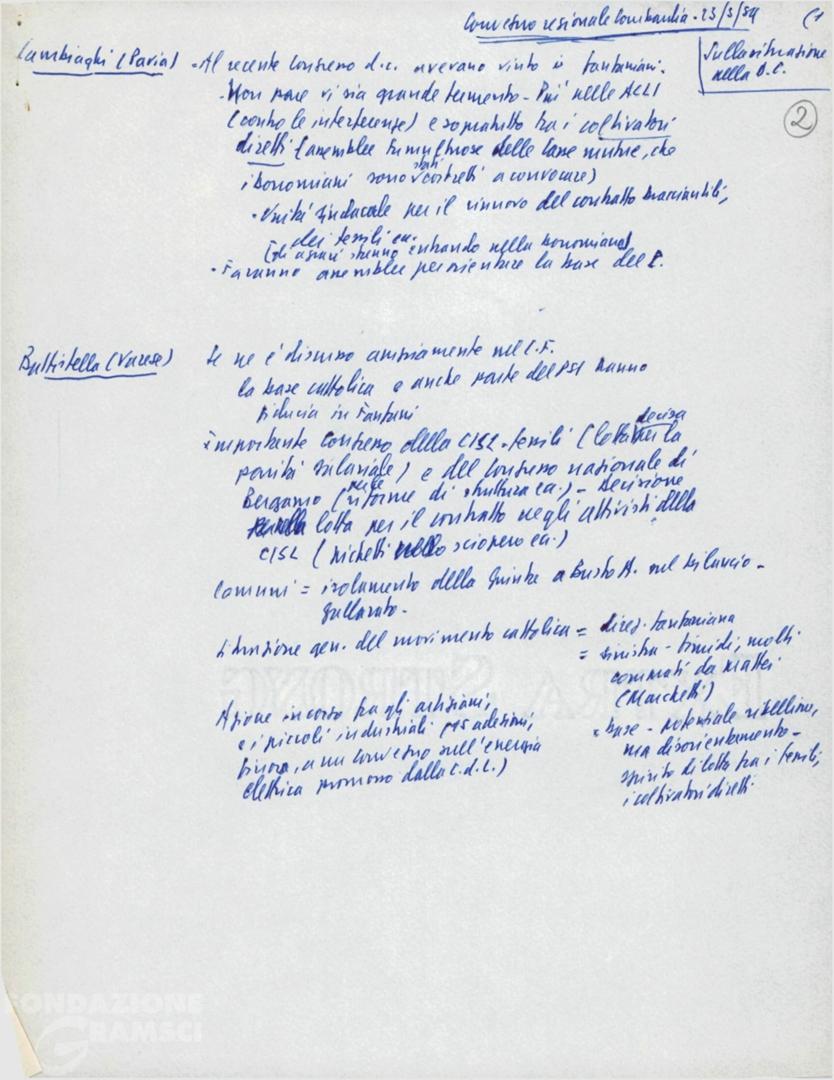 Convegno regionale Lombardia - 23/3/59 (1
Sulla situazione
nella D.C.
2
Cambiaghi (Pavia) - Al recente Congresso d.c. avevano vinto i fanfaniani.
- Non pare vi sia grande fermento - Più nelle ACLI
(contro le interferenze) e soprattutto tra i coltivatori
diretti (assemblee tumultuose delle Casse mutue, che
i bonomiani sono stati costretti a convocare)
- Unità sindacale per il rinnovo del contratto bracciantili,
dei tessili ecc.
(gli agrari stanno entrando nella bonomiana)
- Faranno assemblee per orientare la base del P.
Battistella (Varese) Se ne è discusso ampiamente nel C.F.
la base cattolica e anche parte del PSI hanno
fiducia in Fanfani
Importante Congresso della CISL-tessili (lotta decisa per la
parità salariale) e del Congresso nazionale di
Bergamo (riforme di struttura ecc.) - Decisione
lotta per il contratto negli attivisti della
CISL (picchetti nello sciopero ecc.)
Comuni = isolamento della Giunta a Busto A. sul bilancio -
Gallarate -
Situazione gen. del movimento cattolico = direz. fanfaniana
= sinistra - timidi, molti
comprati da Mattei
(Marchetti)
= base - potenziale ribellione,
ma disorientamento -
spirito di lotta tra i tessili,
i coltivatori diretti
Azione in corso fra gli artigiani,
e i piccoli industriali (75 adesioni,
finora, a un convegno sull'energia
elettrica promosso dalla C.d.L.)
EXTRA STRONG
FONDAZIONE
GRAMSCI